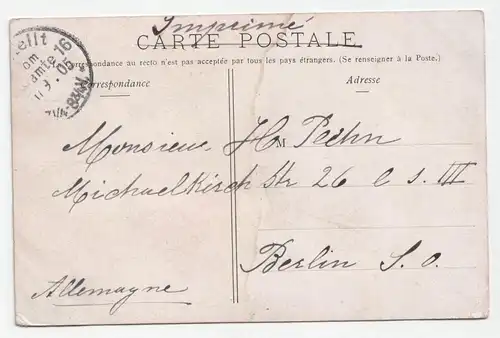 Imprimé
CARTE POSTALE
Correspondance au recto n'est pas acceptée par tous les pays étrangers. (Se renseigner à la Poste.)
Correspondance
Adresse
ellt
16
om
amte
05
Monsieur H. M
Michaelkirch Str 26 l s. III
Berlin S. O.
Allemagne